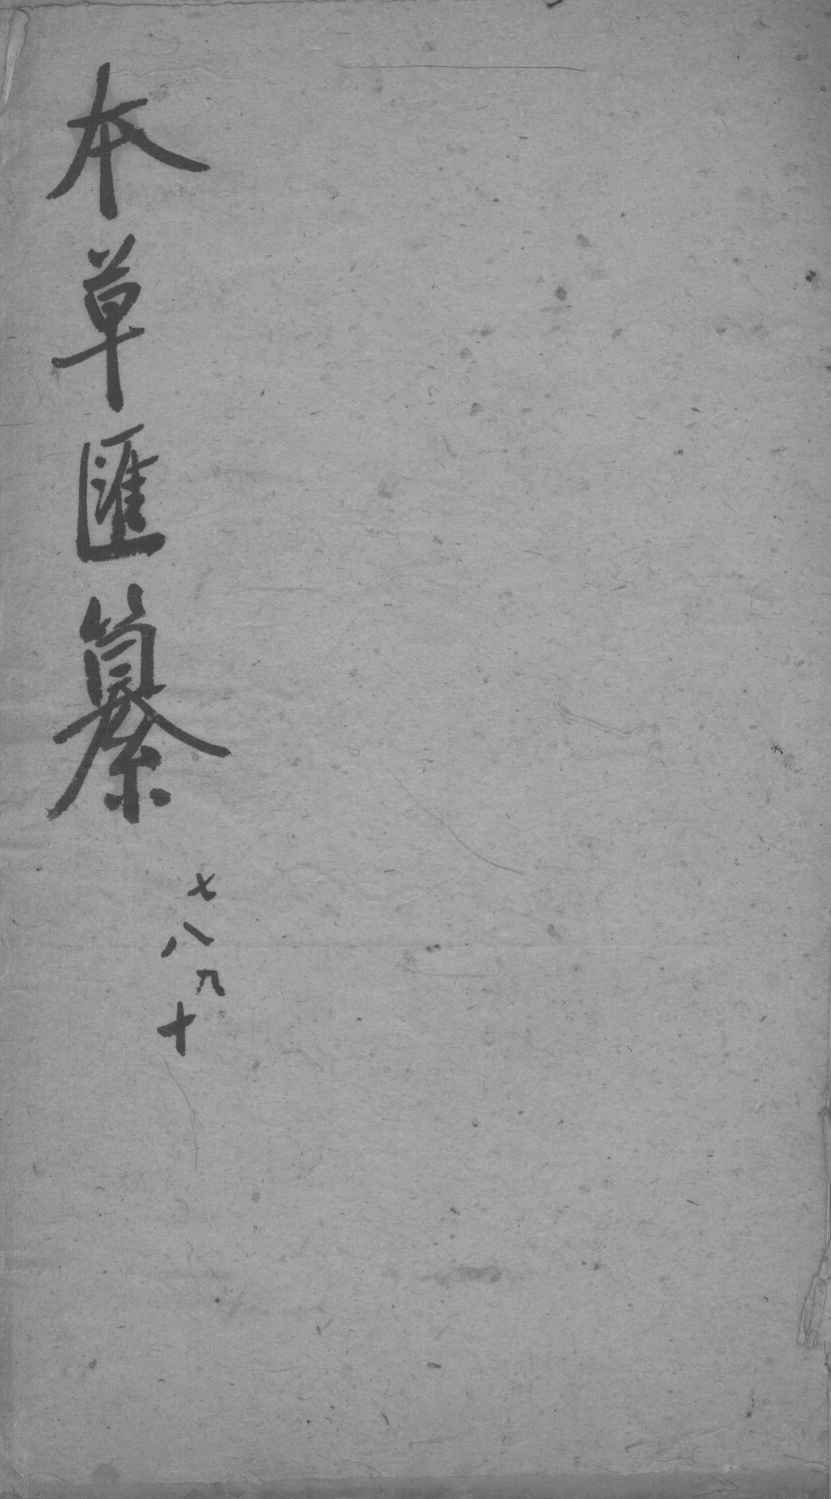 本草匯纂
七八九十